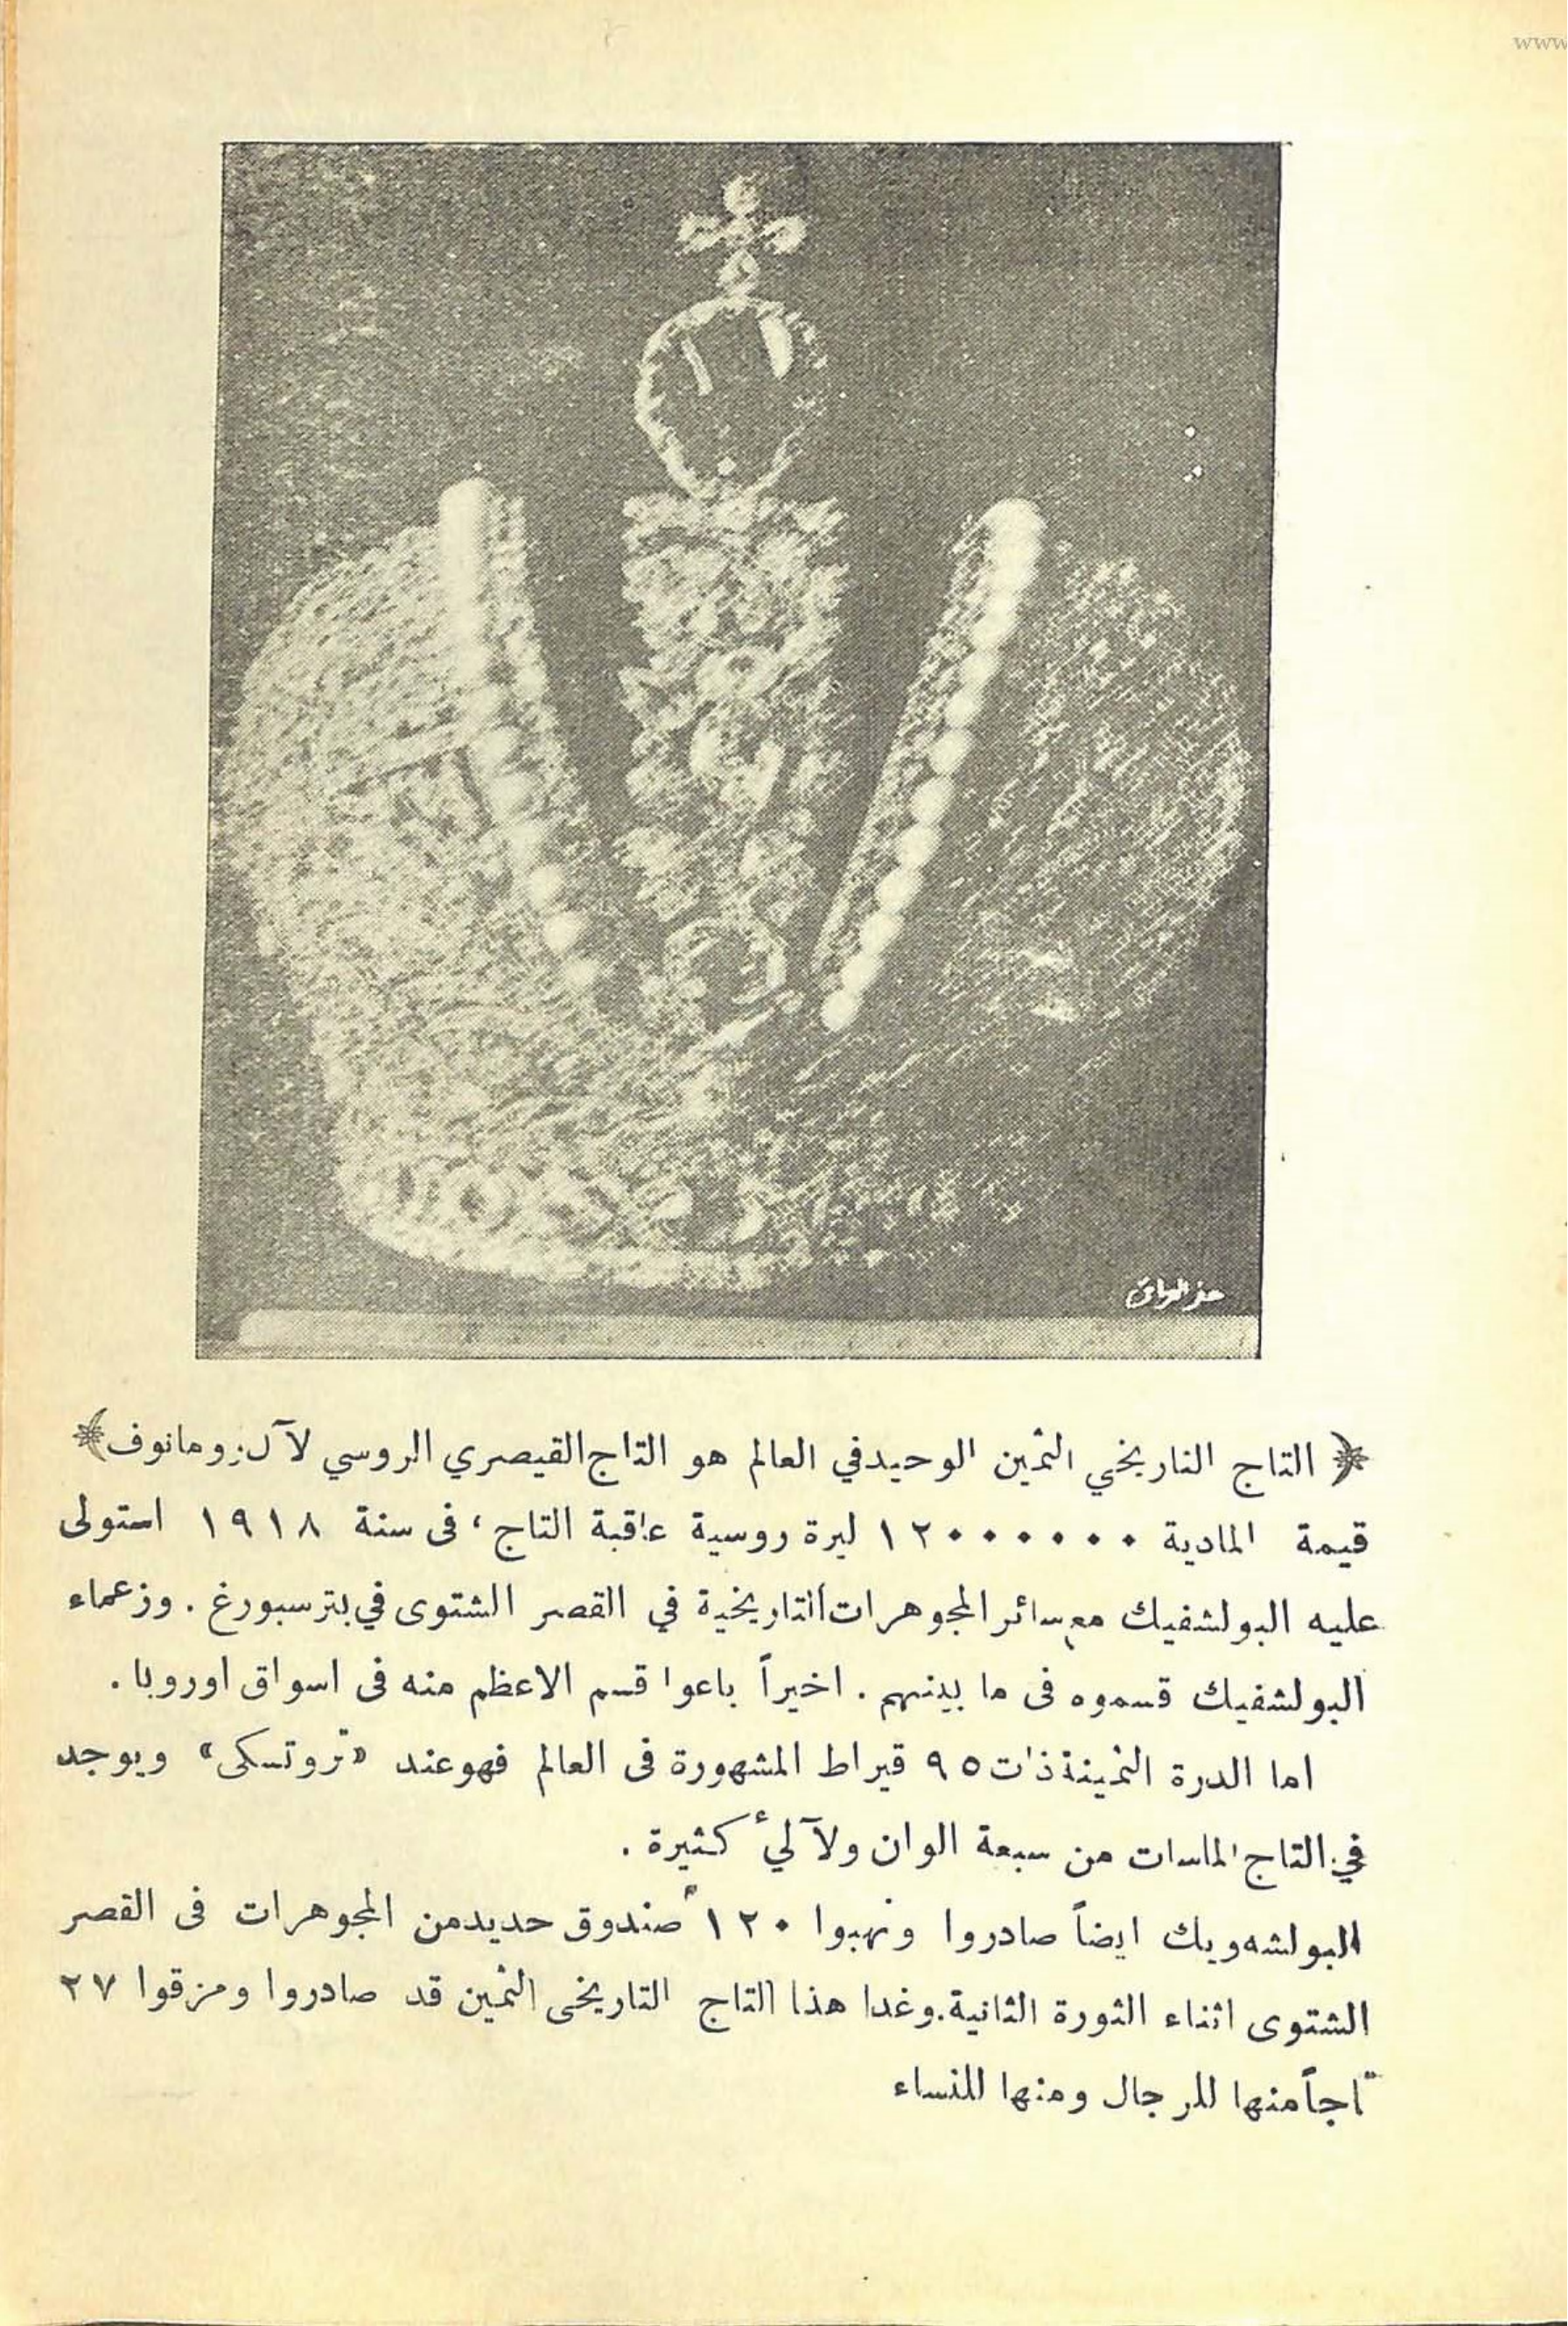 www
حفر العراق
﴿ التاج التاريخي الثمين الوحيد في العالم هو التاج القيصري الروسي لآل رومانوف ﴾
قيمة المادية ١٢٠٠٠٠٠٠ ليرة روسية عاقبة التاج ، فى سنة ١٩١٨ استولى
عليه البولشفيك مع سائر المجوهرات التاريخية في القصر الشتوى في بترسبورغ . وزعماء
البولشفيك قسموه فى ما بينهم . اخيراً باعوا قسم الاعظم منه فى اسواق اوروبا .
اما الدرة الثمينة ذات ٩٥ قيراط المشهورة فى العالم فهو عند «تروتسكى» ويوجد
في التاج الماسات من سبعة الوان ولآلئ كثيرة .
البولشه ويك ايضاً صادروا ونهبوا ١٢٠ صندوق حديد من المجوهرات فى القصر
الشتوى اثناء الثورة الثانية . وغدا هذا التاج التاريخى الثمين قد صادروا ومزقوا ٢٧
تاجاً منها للرجال ومنها للنساء